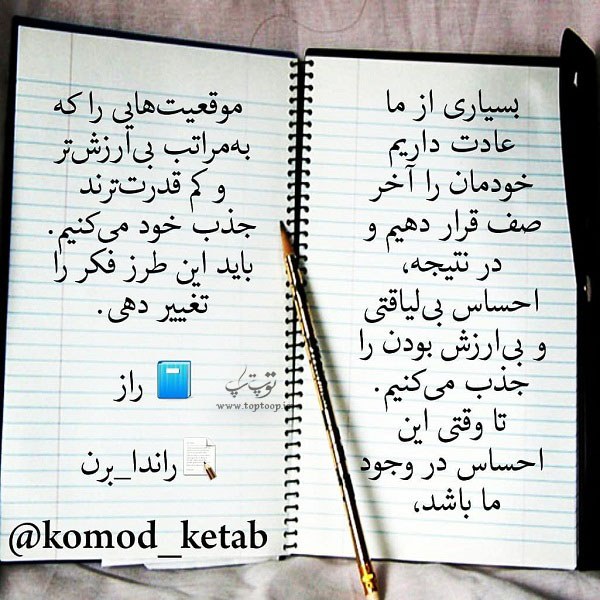 بسیاری از ما
عادت داریم
خودمان را آخر
صف قرار دهیم و
در نتیجه،
احساس بی‌لیاقتی
و بی‌ارزش بودن را
جذب می‌کنیم.
تا وقتی این
احساس در وجود
ما باشد،
موقعیت‌هایی را که
به‌مراتب بی‌ارزش‌تر
و کم قدرت‌ترند
جذب خود می‌کنیم.
باید این طرز فکر را
تغییر دهی.
راز
توپ تاپ
www.toptoop.ir
راندا_برن
@komod_ketab